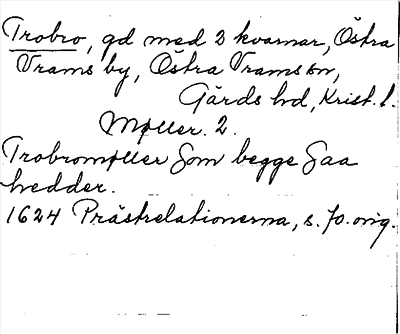 Trobro, gd med 2 kvarnar, Östra
Vrams by, Östra Vrams sn,
Gärds hd, Krist. l.
Møller. 2.
Trobromøller Som begge Saa
hedder.
1624 Prästrelationerna, s. 70. orig.